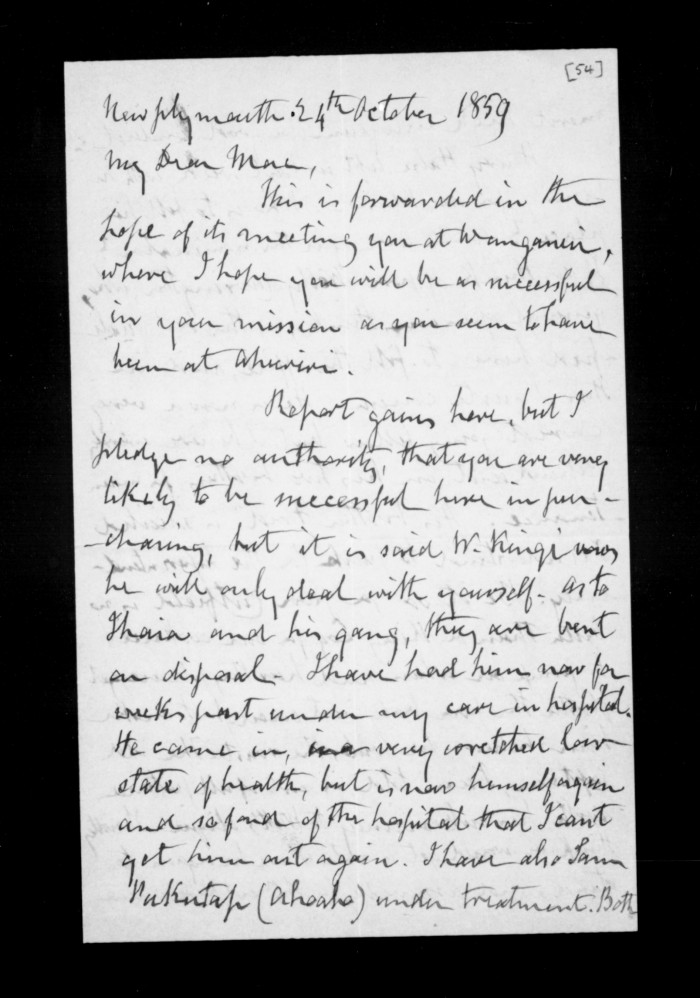 [54]
New plymouth. 24th October 1859
My Dear Mac,
This is forwarded in the
hope of its meeting you at Wanganui,
where I hope you will be as successful
in your mission as you seem to have
been at Ahuriri.
Report gains here, but I
pledge no authority, that you are very
likely to be successful here in pur-
-chasing, but it is said W. Kingi vows
he will only deal with yourself - as to
Ihaia and his gang, they are bent
on disposal - I have had him now for
weeks past under my care in hospital.
He came in, in a very wretched low
state of health, but is now himself again
and so fond of the hospital that I cant
get him out again. I have also
(Ahoaho) under treatment. Both